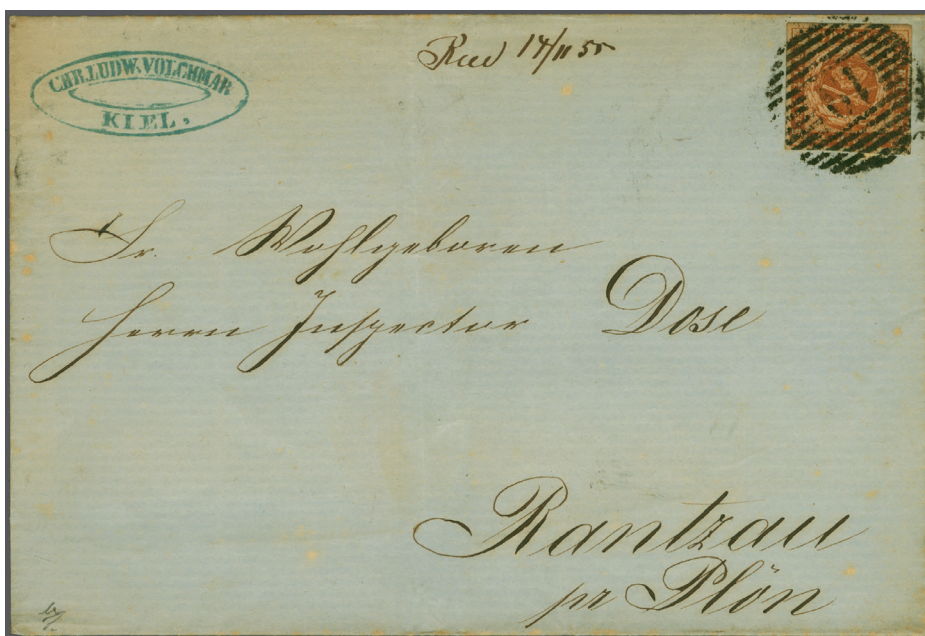 CHR. LUDW. VOLCHMAR
KIEL,
17/11 55
Sr. Wohlgeboren
Herrn Inspector Dose
Rantzau
pr Plön